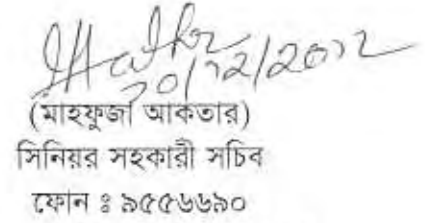 20/12/2012
(মাহফুজা আকতার)
সিনিয়র সহকারী সচিব
ফোন ঃ ৯৫৫৬৬৯০